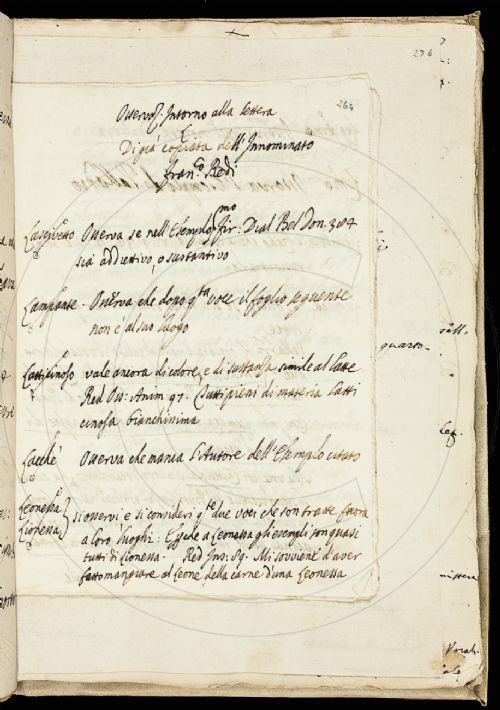 276
264
Osservaz. Intorno alla lettera
L
Di già copiata dell'Innominato
Fran.co Redi
Osserva se nell'Esemplo Fir: Dial Bel Don. 384
mo
sia addiettivo, o sustantivo
Lampante. Osserva che dopo q.ta voce il foglio seguente
non è al suo luogo
Lattificioso vale ancora di colore, e di sustanza simile al latte
Red Oss: Anim 97. Tutti pieni di materia latti
cinosa bianchissima
Lacchè Osserva che manca l'Autore dell'Esemplo citato
Leonessa
Lionessa
si osservi e si consideri q.te due voci che son tratte fuora
a loro luoghi. E perché a Leonessa gli esempli son quasi
tutti di Lionessa. Red Ins. 59. Mi sovviene d'aver
fatto mangiare al leone della carne d'una Leonessa
quarto.
Vocab.